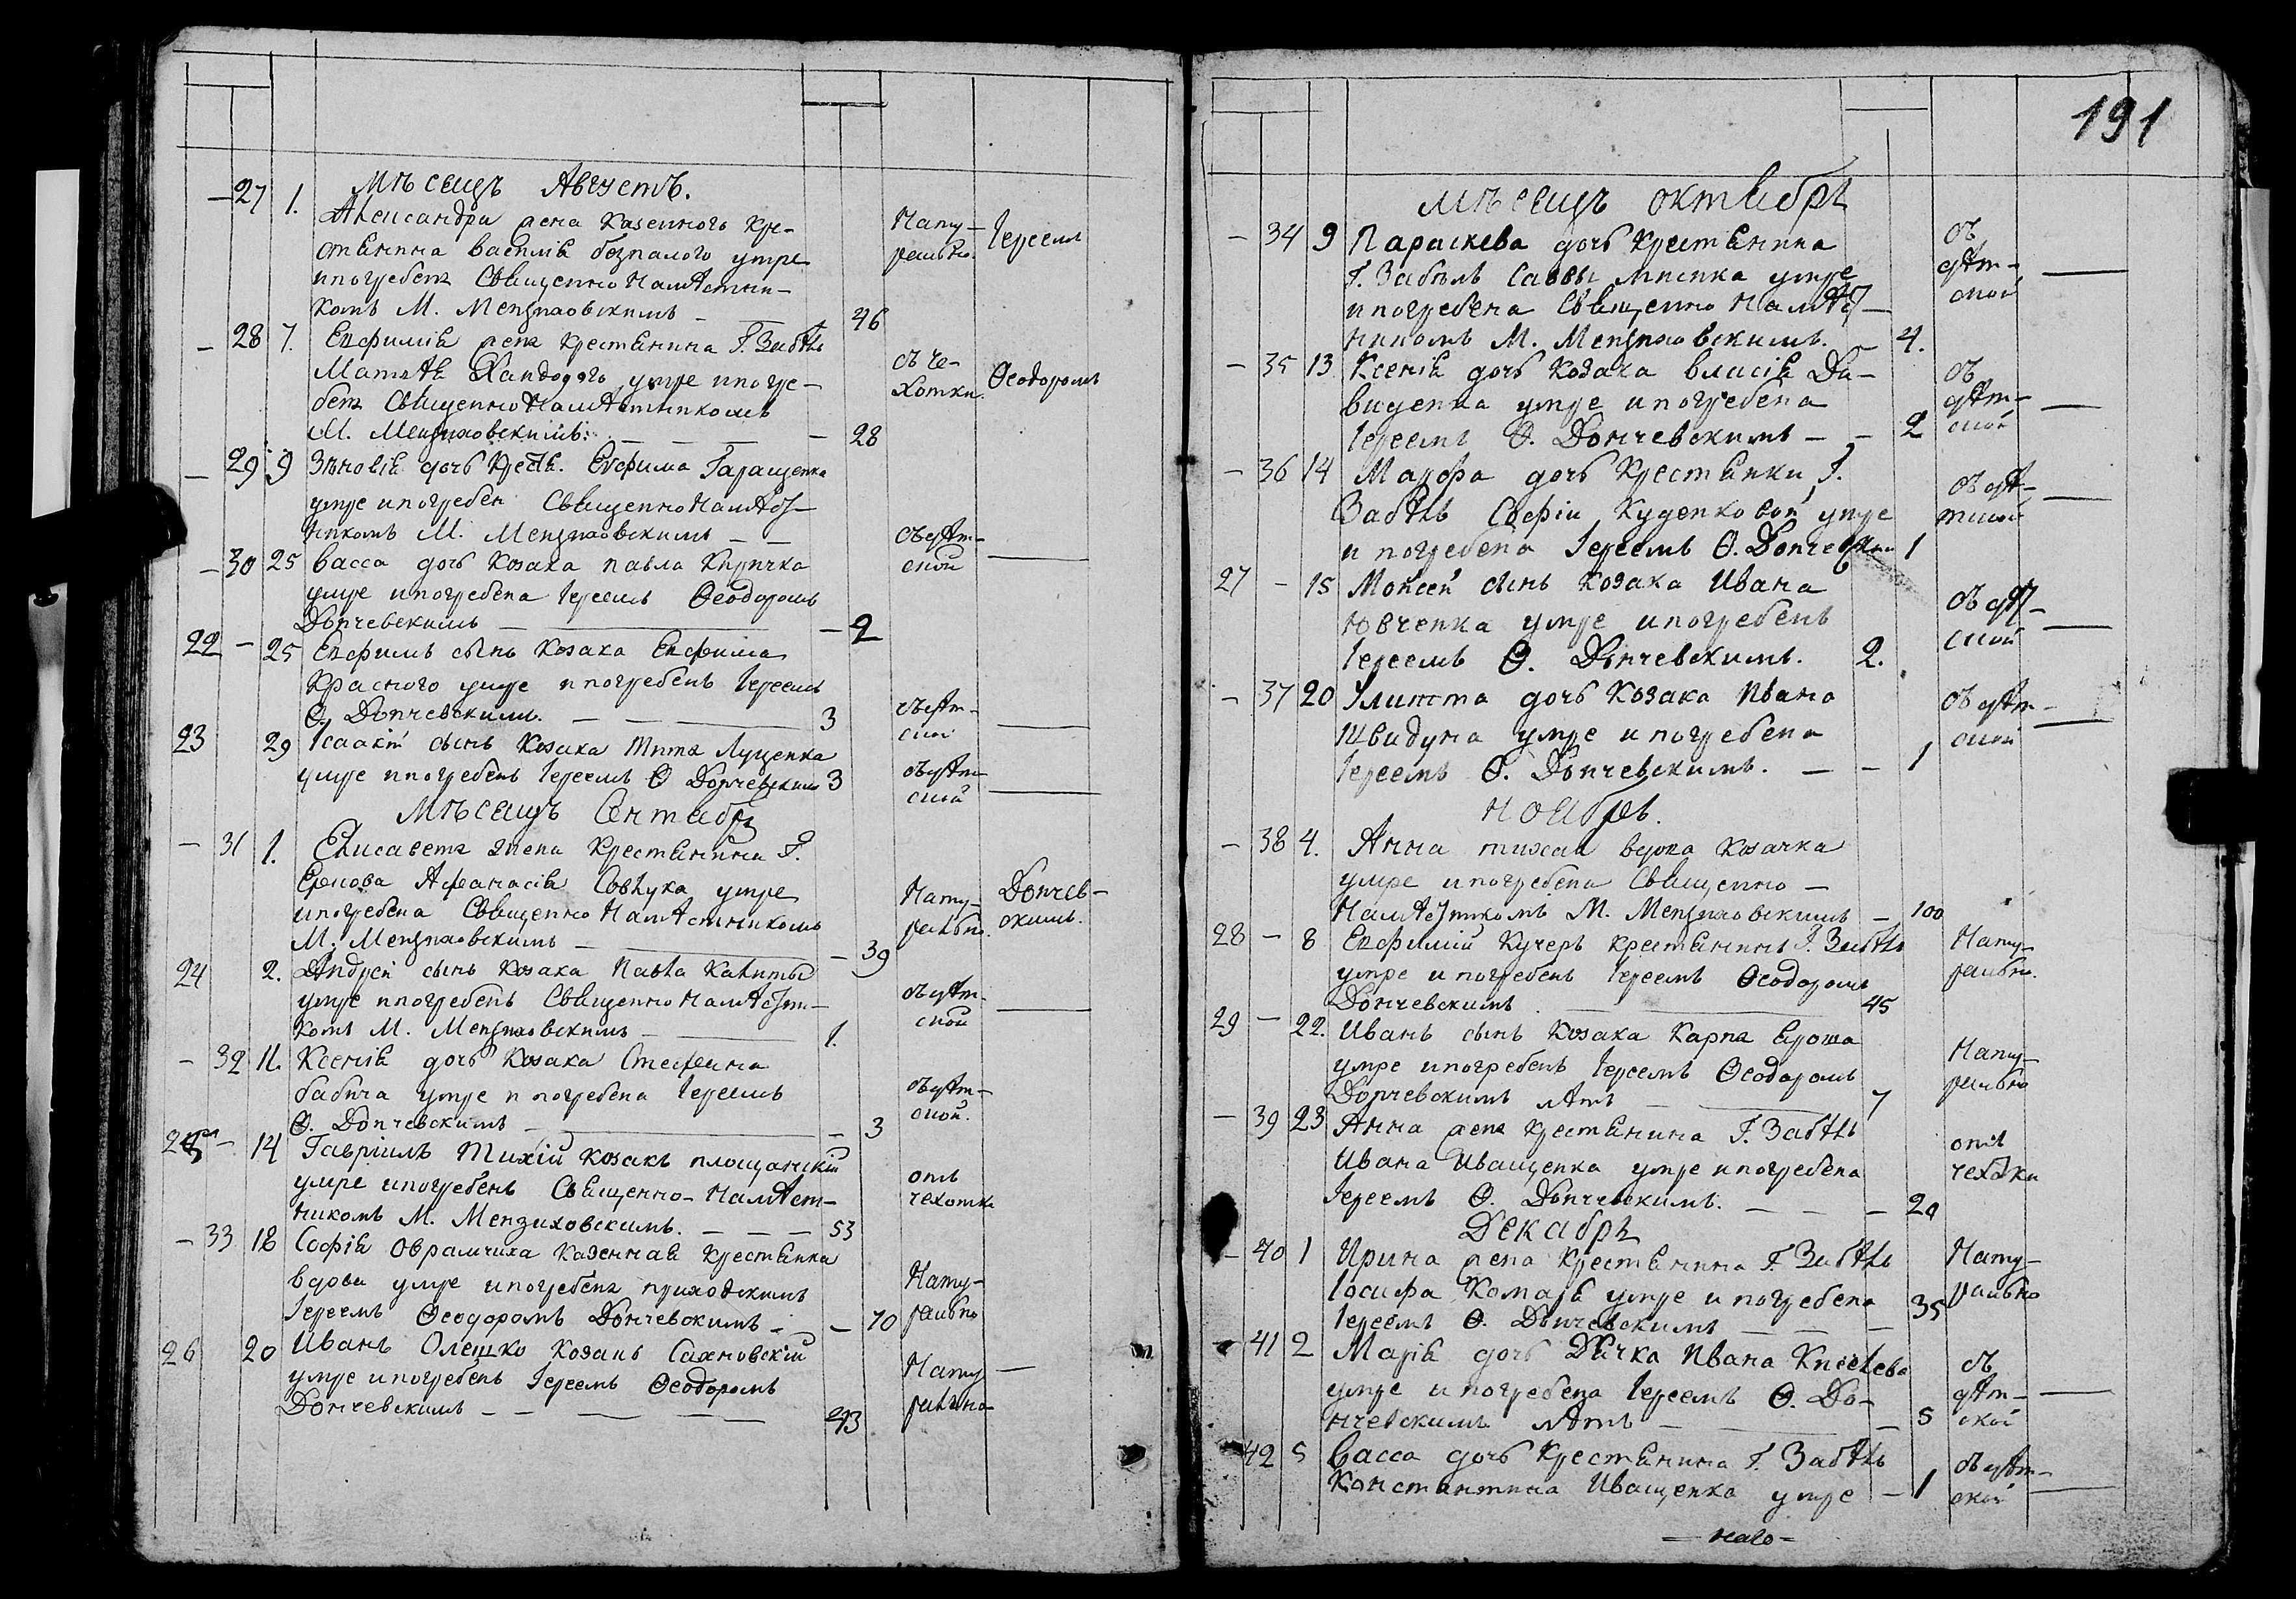 191
Мѣсяцъ Августъ.
— 27 1. Александра жена Казенного Кре-
стянина Василія безпалого умре
и погребена Священно Намѣстни-
комъ М. Мензиховскимъ — 46 Нату-
рально. Іереемъ
— 28 7. Евфимія жена Крестянина Г. Забѣлы
Матѣя умре и погре-
бена Священно Намѣстникомъ
М. Мензиховскимъ. — — — 28 съ че-
хотки. Ѳеодоромъ
— 29 9 Зѣновія дочъ Крестя. Евфима Гаращенка
умре и погребен Священно Намѣст-
никомъ М. Мензиховскимъ — —
— 30 25 Васса дочъ Козака Павла Киричка
умре и погребена Іереемъ Ѳеодоромъ
Дончевскимъ — — 2 Объят-
спой —
22 — 25 Евфимъ сынъ Козака Евфима
Красного умре и погребенъ Іереемъ
Ѳ. Дончевскимъ. — — 3
23 29 Ісаакій сынъ Козака Тита Луценка
умре и погребенъ Іереемъ Ѳ Дончевскимъ 3
Мѣсяцъ Сентябрь
— 31 1. Елисавета жена Крестянина Г.
Афанасія Совѣука умре
и погребена Священно Намѣстникомъ
М. Мензиховскимъ — — 39 Нату-
рально. Дончев-
скимъ.
24 2. Андрей сынъ Козака Павла Калиты
умре и погребенъ Священно Намѣстни-
комъ М. Мензиховскимъ — 1.
— 32 11. Ксенія дочъ Козака Стефана
бабича умре и погребена Іереемъ
Ѳ. Дончевскимъ — — 3
25 — 14 Гавріилъ Тихій козакъ площанскій
умре и погребенъ Священно-Намѣст-
никомъ М. Мензиховскимъ. — — — 53 отъ
чехотки
— 33 18 Софія Оврамчиха казенная Крестянка
вдова умре и погребена приходскимъ
Іереемъ Ѳеодоромъ Дончевскимъ — — 70 Нату-
рально
26 20 Иванъ Олешко Козакъ Сахновскій
умре и погребенъ Іереемъ Ѳеодоромъ
Дончевскимъ — — — 43 Нату —
рально
мѣсяцъ октябрь
— 34 9 Параскева дочъ Крестянина
Г. Забѣлъ Саввы умре
и погребена Священно Намѣст-
никомъ М. Мензиховскимъ. — 4.
— 35 13 Ксенія дочъ Козака Власія Да-
виденка умре и погребена
Іереемъ Ѳ. Дончевскимъ — — 2
— 36 14 Марфа дочъ Крестянки Г.
Забѣлъ Софіи Куценковой умре
и погребена Іереемъ Ѳ. Дончевскимъ 1
27 — 15 Мойсей сынъ Козака Ивана
Ювченка умре и погребенъ
Іереемъ Ѳ. Дончевскимъ. 2.
— 37 20 Улитта дочъ Козака Ивана
Швидуна умре и погребена
Іереемъ Ѳ. Дончевскимъ. — — 1
Ноябрь.
— 38 4. Анна тихая вдова Козачка
умре и погребена Священно —
Намѣстникомъ М. Мензиховскимъ — 100
28 — 8 Евфимій Кучеръ крестянинъ Г. Забѣлъ
умре и погребенъ Іереемъ Ѳеодоромъ
Дончевскимъ — 45 Нату-
рально.
29 — 22. Иванъ сынъ Козака Карпа Яроша
умре и погребенъ Іереемъ Ѳеодоромъ
Дончевскимъ лѣтъ — 7 Нату-
рально
— 39 23 Анна жена Крестянина Г. Забѣлъ
Ивана Иващенка умре и погребена
Іереемъ Ѳ. Дончевскимъ. — — — 20 отъ
чехотки
Декабрь
— 40 1 Ирина жена Крестянина Г. Забѣлъ
Іосифа Комаря умре и погребена
Іереемъ Ѳ. Дончевскимъ — — 35 Нату-
рально
— 41 2 Марія дочъ Дячка Ивана
умре и погребена Іереемъ Ѳ. До-
нчевскимъ лѣтъ — — 5
42 5 Васса дочъ Крестянина Г. Забѣлъ
Константина Иващенка умре — 1